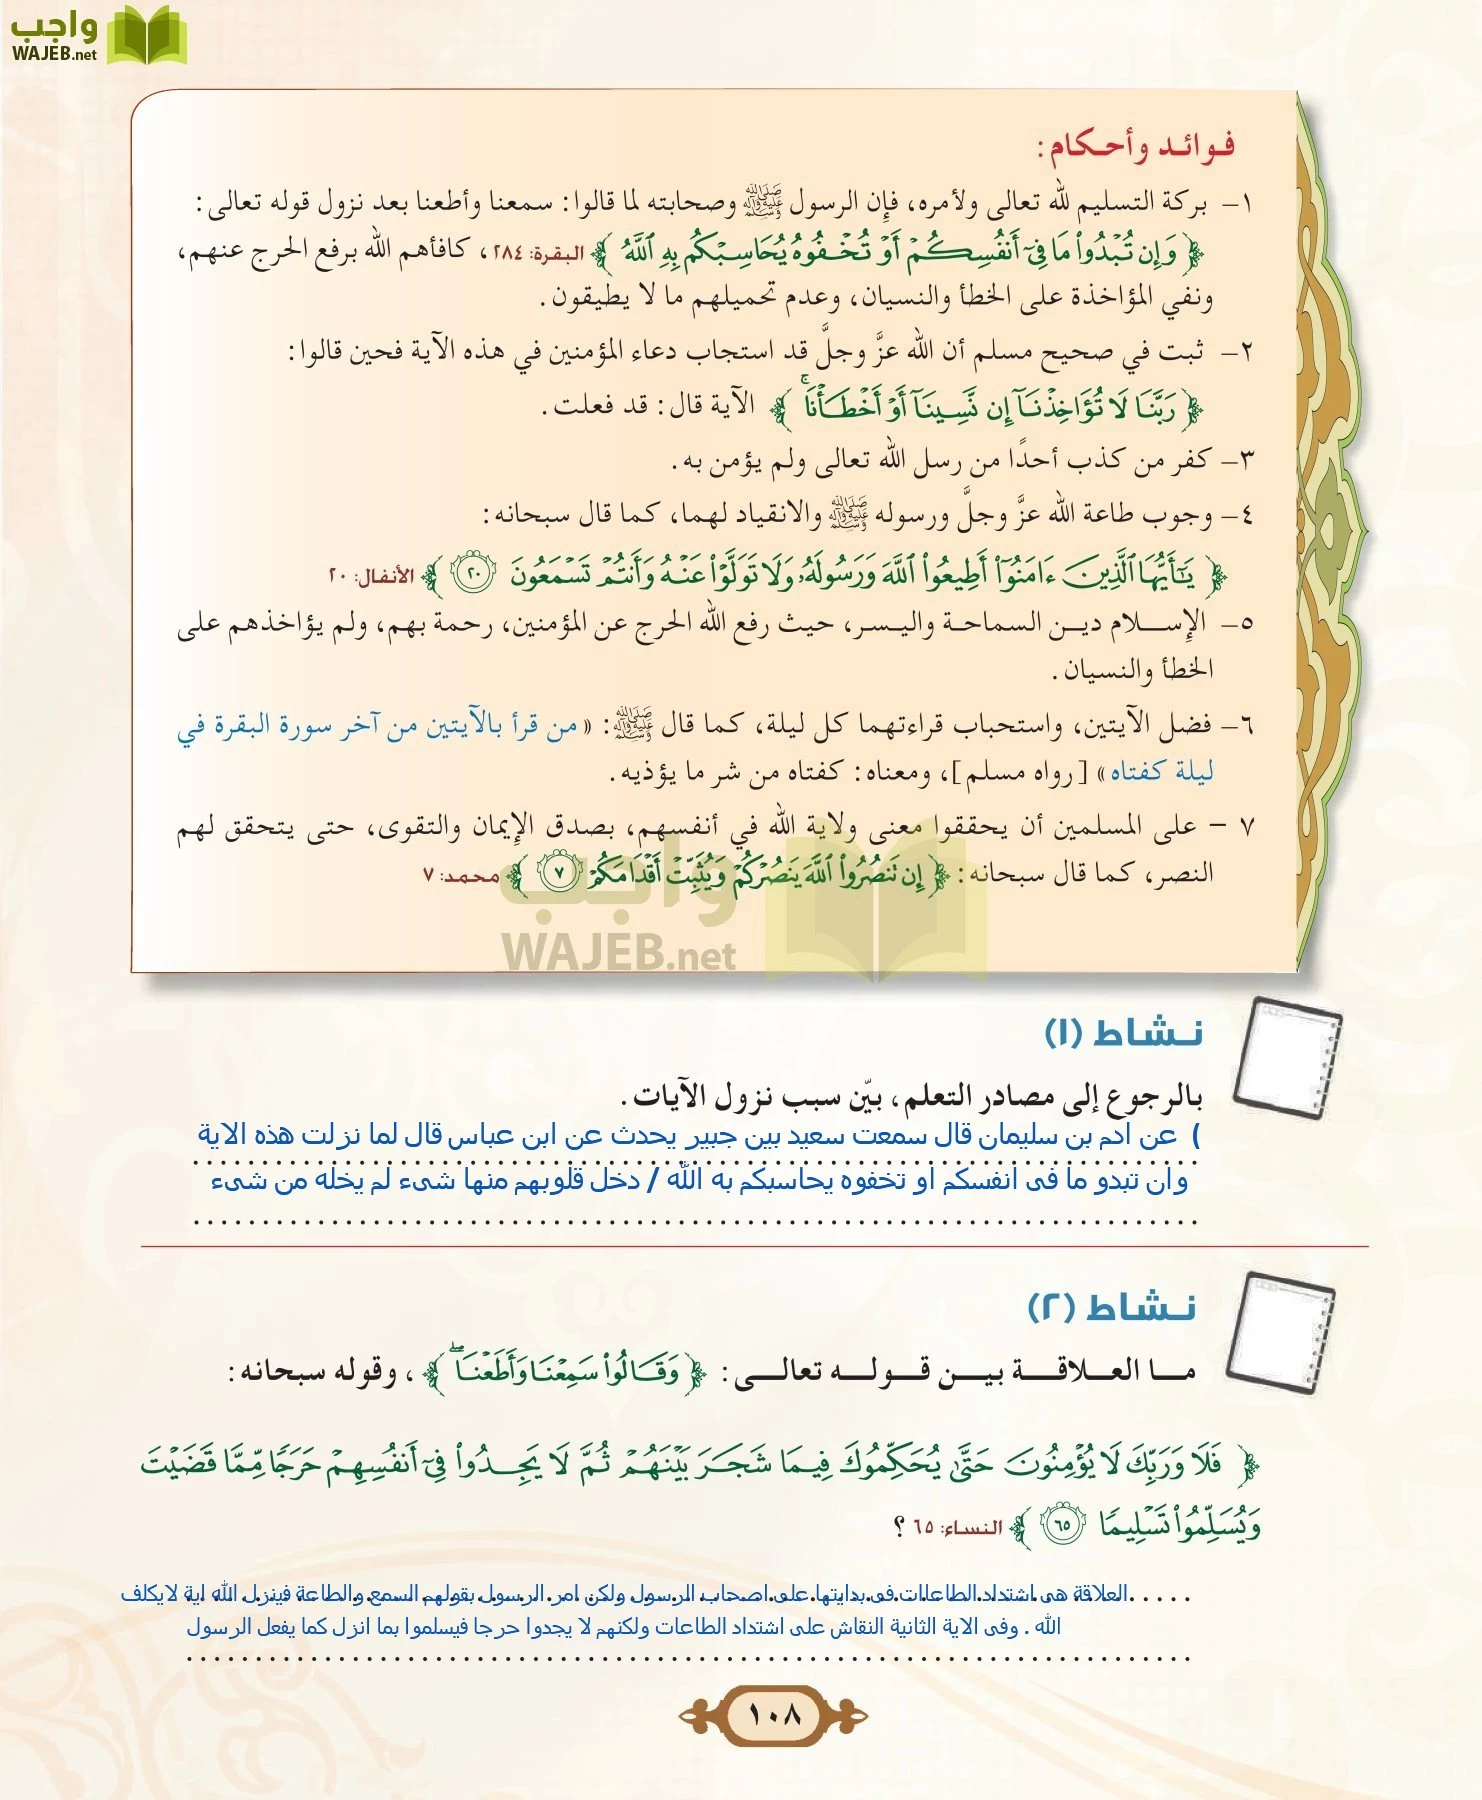 واجب
WAJEB.net
فـوائـد وأحـكـام:
١– بركة التسليم لله تعالى ولأمره، فإن الرسول ﷺ وصحابته لما قالوا: سمعنا وأطعنا بعد نزول قوله تعالى:
﴿ وَإِن تُبْدُوا۟ مَا فِىٓ أَنفُسِكُمْ أَوْ تُخْفُوهُ يُحَاسِبْكُم بِهِ ٱللَّهُ ﴾ البقرة: ٢٨٤، كافأهم الله برفع الحرج عنهم،
ونفي المؤاخذة على الخطأ والنسيان، وعدم تحميلهم ما لا يطيقون.
٢– ثبت في صحيح مسلم أن الله عزَّ وجلَّ قد استجاب دعاء المؤمنين في هذه الآية فحين قالوا:
﴿ رَبَّنَا لَا تُؤَاخِذْنَآ إِن نَّسِينَآ أَوْ أَخْطَأْنَا ۚ ﴾ الآية قال: قد فعلت.
٣– كفر من كذب أحدًا من رسل الله تعالى ولم يؤمن به.
٤– وجوب طاعة الله عزَّ وجلَّ ورسوله ﷺ والانقياد لهما، كما قال سبحانه:
﴿ يَـٰٓأَيُّهَا ٱلَّذِينَ ءَامَنُوٓا۟ أَطِيعُوا۟ ٱللَّهَ وَرَسُولَهُۥ وَلَا تَوَلَّوْا۟ عَنْهُ وَأَنتُمْ تَسْمَعُونَ ٢٠ ﴾ الأنفال: ٢٠
٥– الإســلام ديـن السماحـة واليـسـر، حيث رفع الله الحرج عن المؤمنين، رحمة بهم، ولم يؤاخذهم على
الخطأ والنسيان.
٦– فضل الآيتين، واستحباب قراءتهما كل ليلة، كما قال ﷺ: «من قرأ بالآيتين من آخر سورة البقرة في
ليلة كفتاه» [رواه مسلم]، ومعناه: كفتاه من شر ما يؤذيه.
٧ – على المسلمين أن يحققوا معنى ولاية الله في أنفسهم، بصدق الإيمان والتقوى، حتى يتحقق لهم
النصر، كما قال سبحانه: ﴿ إِن تَنصُرُوا۟ ٱللَّهَ يَنصُرْكُمْ وَيُثَبِّتْ أَقْدَامَكُمْ ٧ ﴾ محمد: ٧
واجب
WAJEB.net
نـشـاط (١)
بالرجوع إلى مصادر التعلم، بيّن سبب نزول الآيات.
) عن ادم بن سليمان قال سمعت سعيد بين جبير يحدث عن ابن عباس قال لما نزلت هذه الاية
وان تبدو ما فى انفسكم او تخفوه يحاسبكم به الله / دخل قلوبهم منها شىء لم يخله من شىء
نـشـاط (٢)
مـــا العـــلاقـــة بـيـــن قـــولـــه تعالـــى: ﴿ وَقَالُوا۟ سَمِعْنَا وَأَطَعْنَا ۖ ﴾، وقوله سبحانه:
﴿ فَلَا وَرَبِّكَ لَا يُؤْمِنُونَ حَتَّىٰ يُحَكِّمُوكَ فِيمَا شَجَرَ بَيْنَهُمْ ثُمَّ لَا يَجِدُوا۟ فِىٓ أَنفُسِهِمْ حَرَجًا مِّمَّا قَضَيْتَ
وَيُسَلِّمُوا۟ تَسْلِيمًا ٦٥ ﴾ النساء: ٦٥ ؟
العلاقة هى اشتداد الطاعات فى بدايتها على اصحاب الرسول ولكن امر الرسول بقولهم السمع والطاعة فينزل الله اية لايكلف
الله . وفى الاية الثانية النقاش على اشتداد الطاعات ولكنهم لا يجدوا حرجا فيسلموا بما انزل كما يفعل الرسول
١٠٨